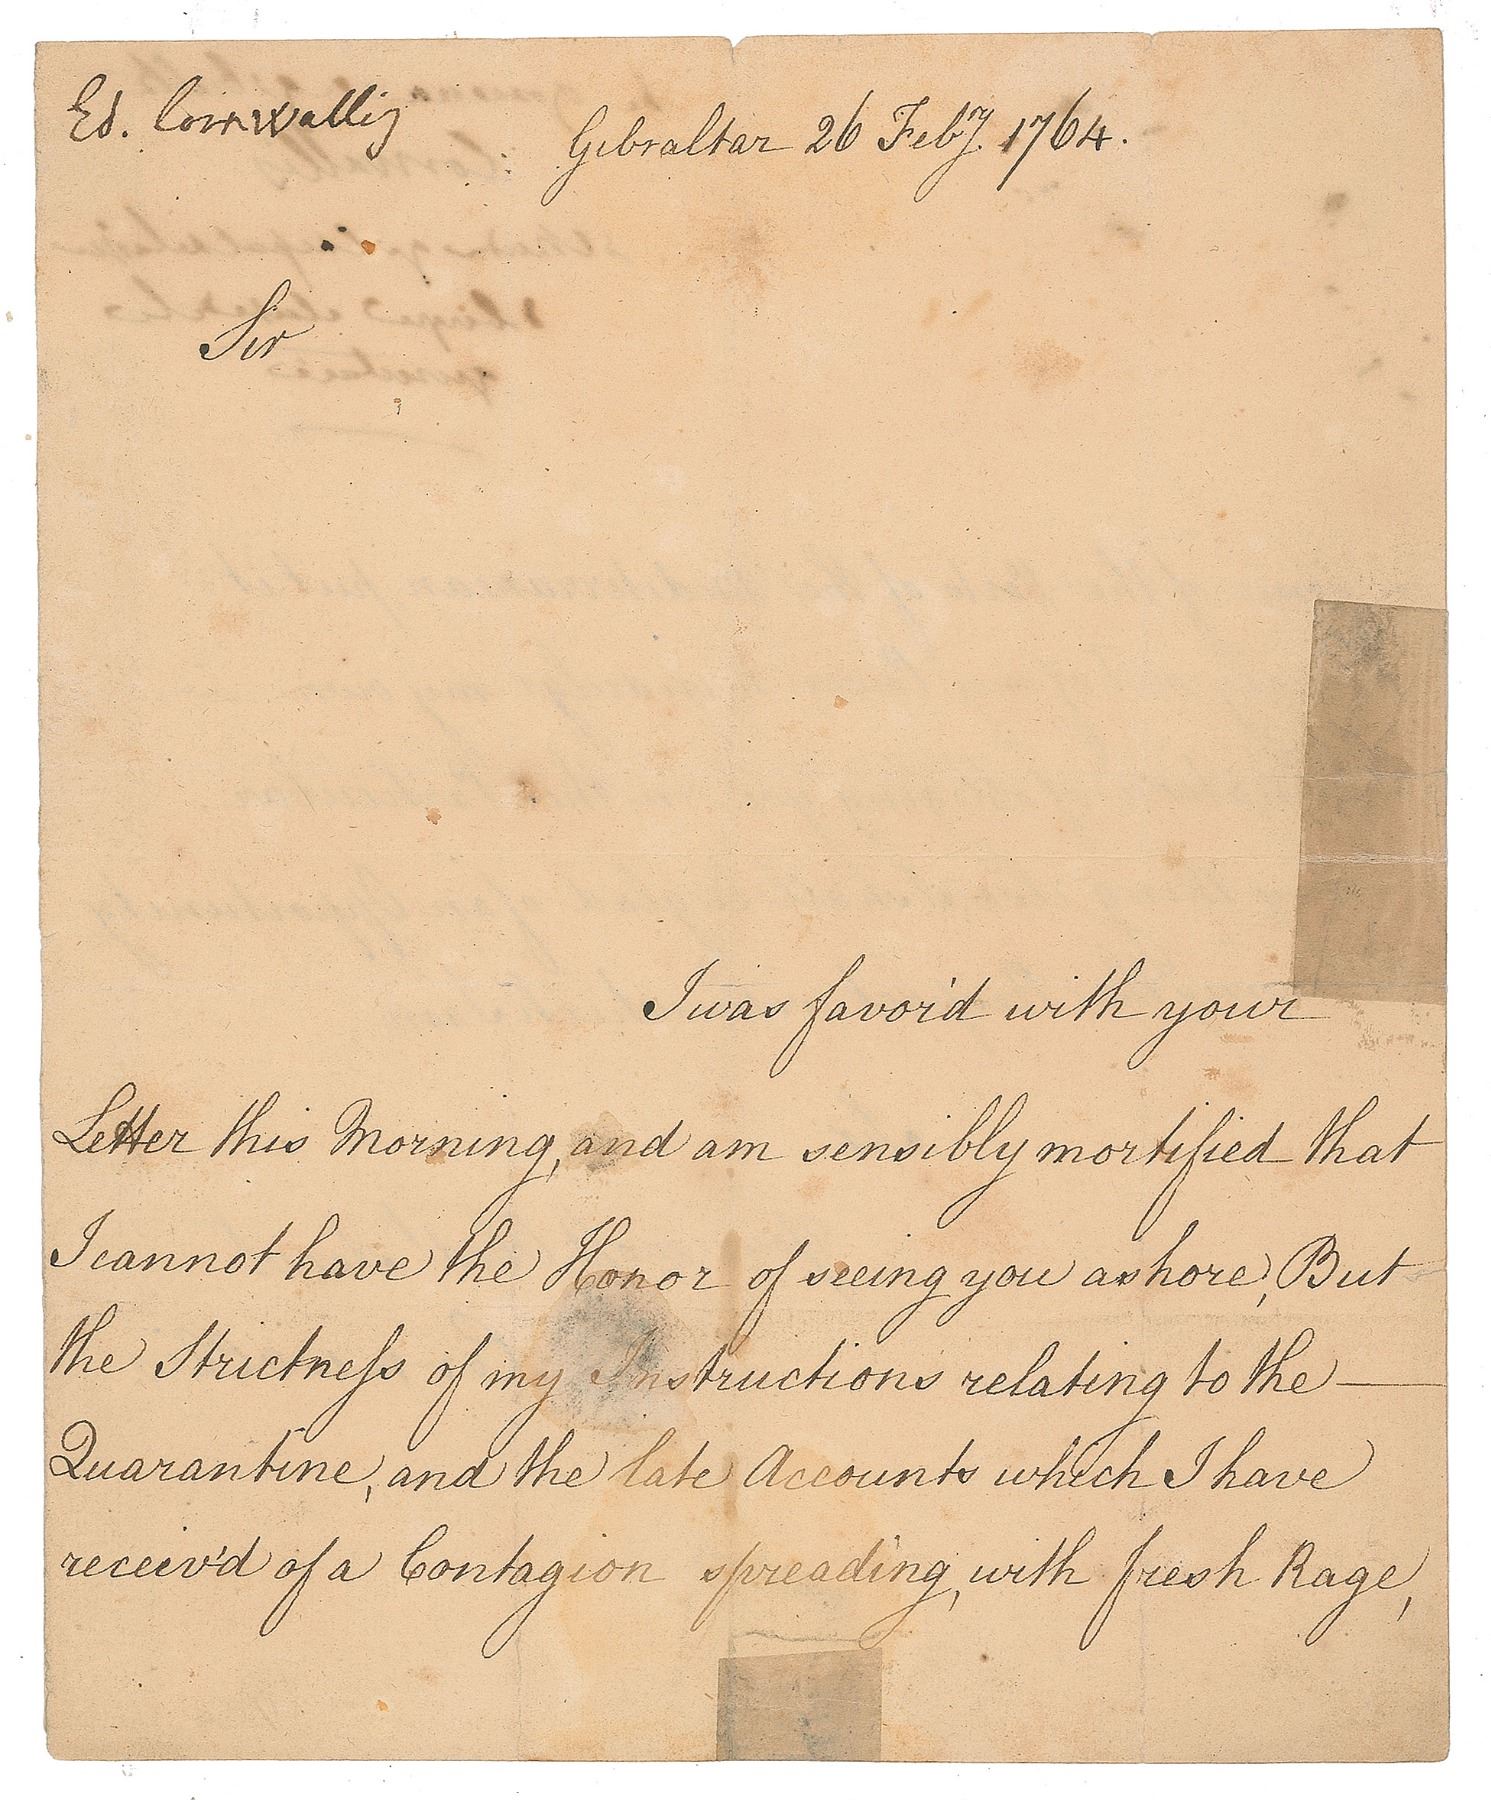 Ed. Cornwallis
Gibraltar 26 Feb.ry 1764.
Sir
I was favor'd with your
Letter this Morning, and am sensibly mortified that
I cannot have the Honor of seeing you ashore, But
the Strictneſs of my Instructions relating to the —
Quarantine, and the late Accounts which I have
receiv'd of a Contagion spreading, with fresh Rage,